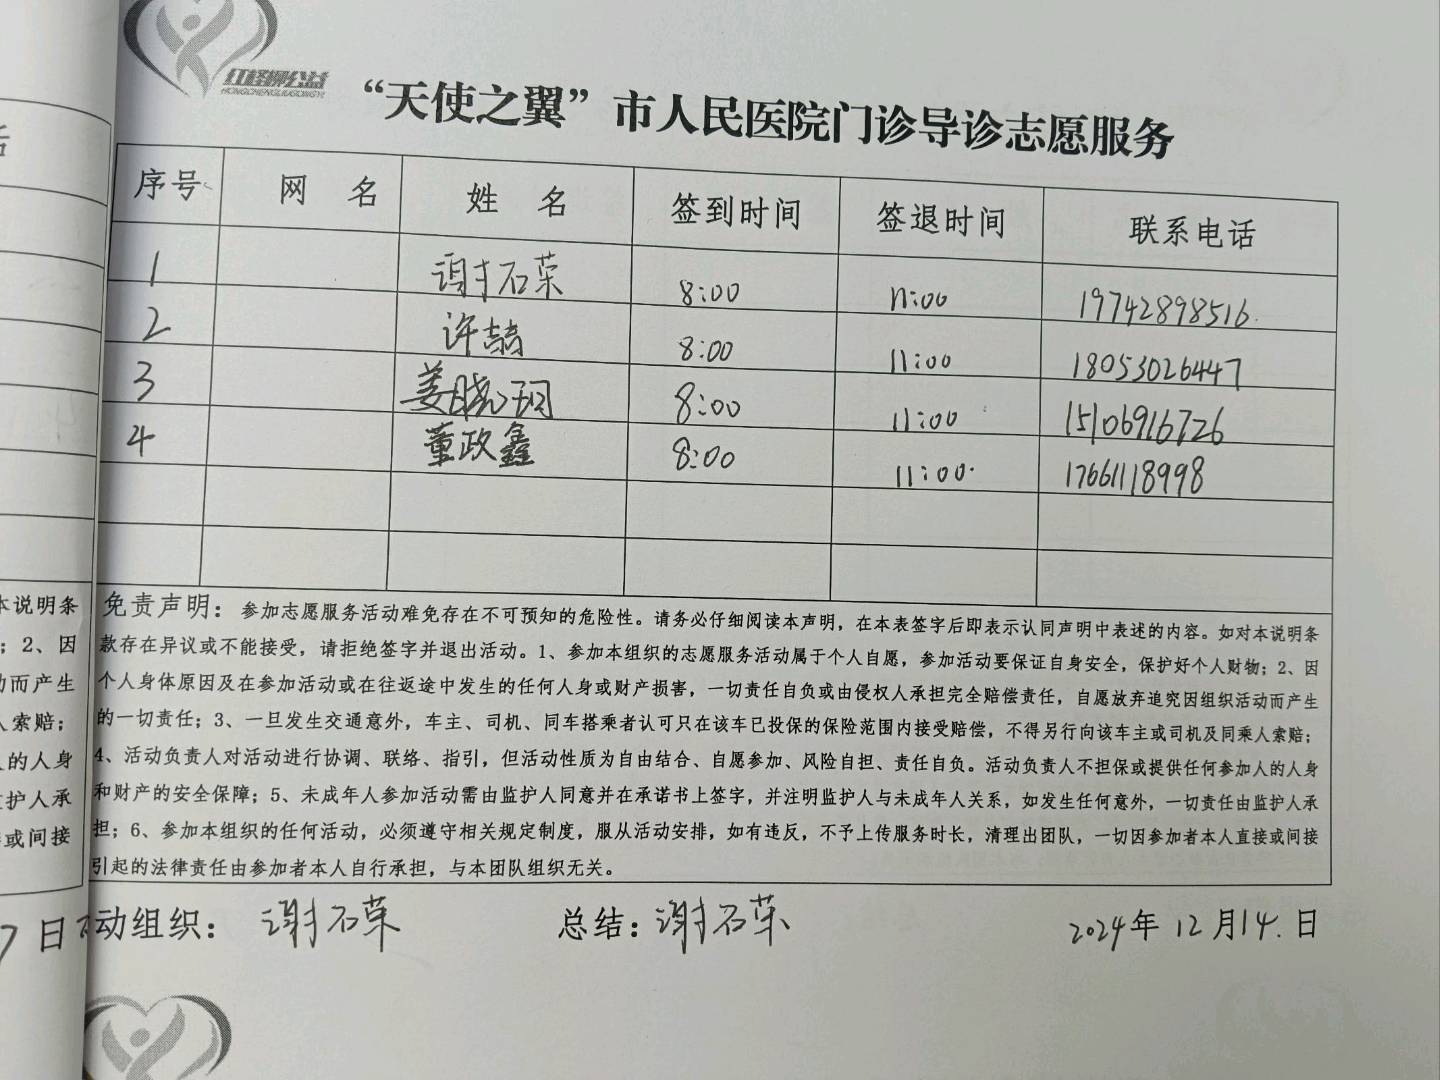 红柽柳公益
HONGCHENGLIUGONGYI
“天使之翼”市人民医院门诊导诊志愿服务
序号 网 名 姓 名 签到时间 签退时间 联系电话
1 谢石荣 8:00 11:00 19742898516
2 许喆 8:00 11:00 18053026447
3 姜晓珂 8:00 11:00 15106916726
4 董政鑫 8:00 11:00 17661118998
免责声明：参加志愿服务活动难免存在不可预知的危险性。请务必仔细阅读本声明，在本表签字后即表示认同声明中表述的内容。如对本说明条
款存在异议或不能接受，请拒绝签字并退出活动。1、参加本组织的志愿服务活动属于个人自愿，参加活动要保证自身安全，保护好个人财物；2、因
个人身体原因及在参加活动或在往返途中发生的任何人身或财产损害，一切责任自负或由侵权人承担完全赔偿责任，自愿放弃追究因组织活动而产生
的一切责任；3、一旦发生交通意外，车主、司机、同车搭乘者认可只在该车已投保的保险范围内接受赔偿，不得另行向该车主或司机及同乘人索赔；
4、活动负责人对活动进行协调、联络、指引，但活动性质为自由结合、自愿参加、风险自担、责任自负。活动负责人不担保或提供任何参加人的人身
和财产的安全保障；5、未成年人参加活动需由监护人同意并在承诺书上签字，并注明监护人与未成年人关系，如发生任何意外，一切责任由监护人承
担；6、参加本组织的任何活动，必须遵守相关规定制度，服从活动安排，如有违反，不予上传服务时长，清理出团队，一切因参加者本人直接或间接
引起的法律责任由参加者本人自行承担，与本团队组织无关。
动组织：谢石荣 总结：谢石荣 2024年12月14日
本说明条
；2、因
动而产生
人索赔；
人的人身
监护人承
或间接
7日